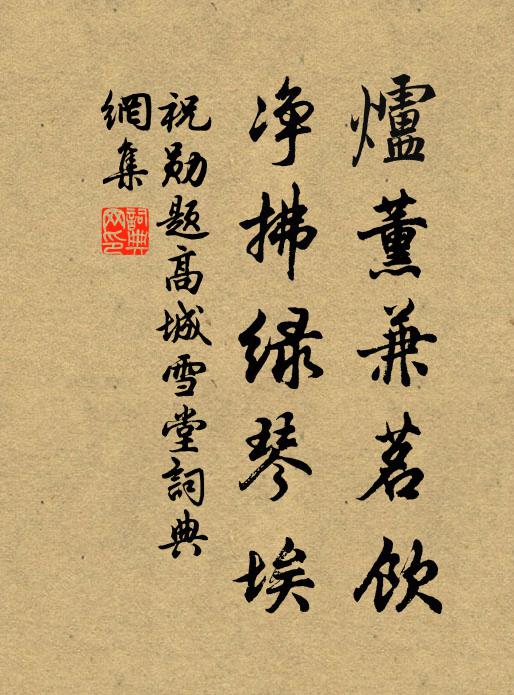 爐薰兼茗飲
净拂緑琴埃
祝勛題高城雪堂詞典
網集
詞典網印